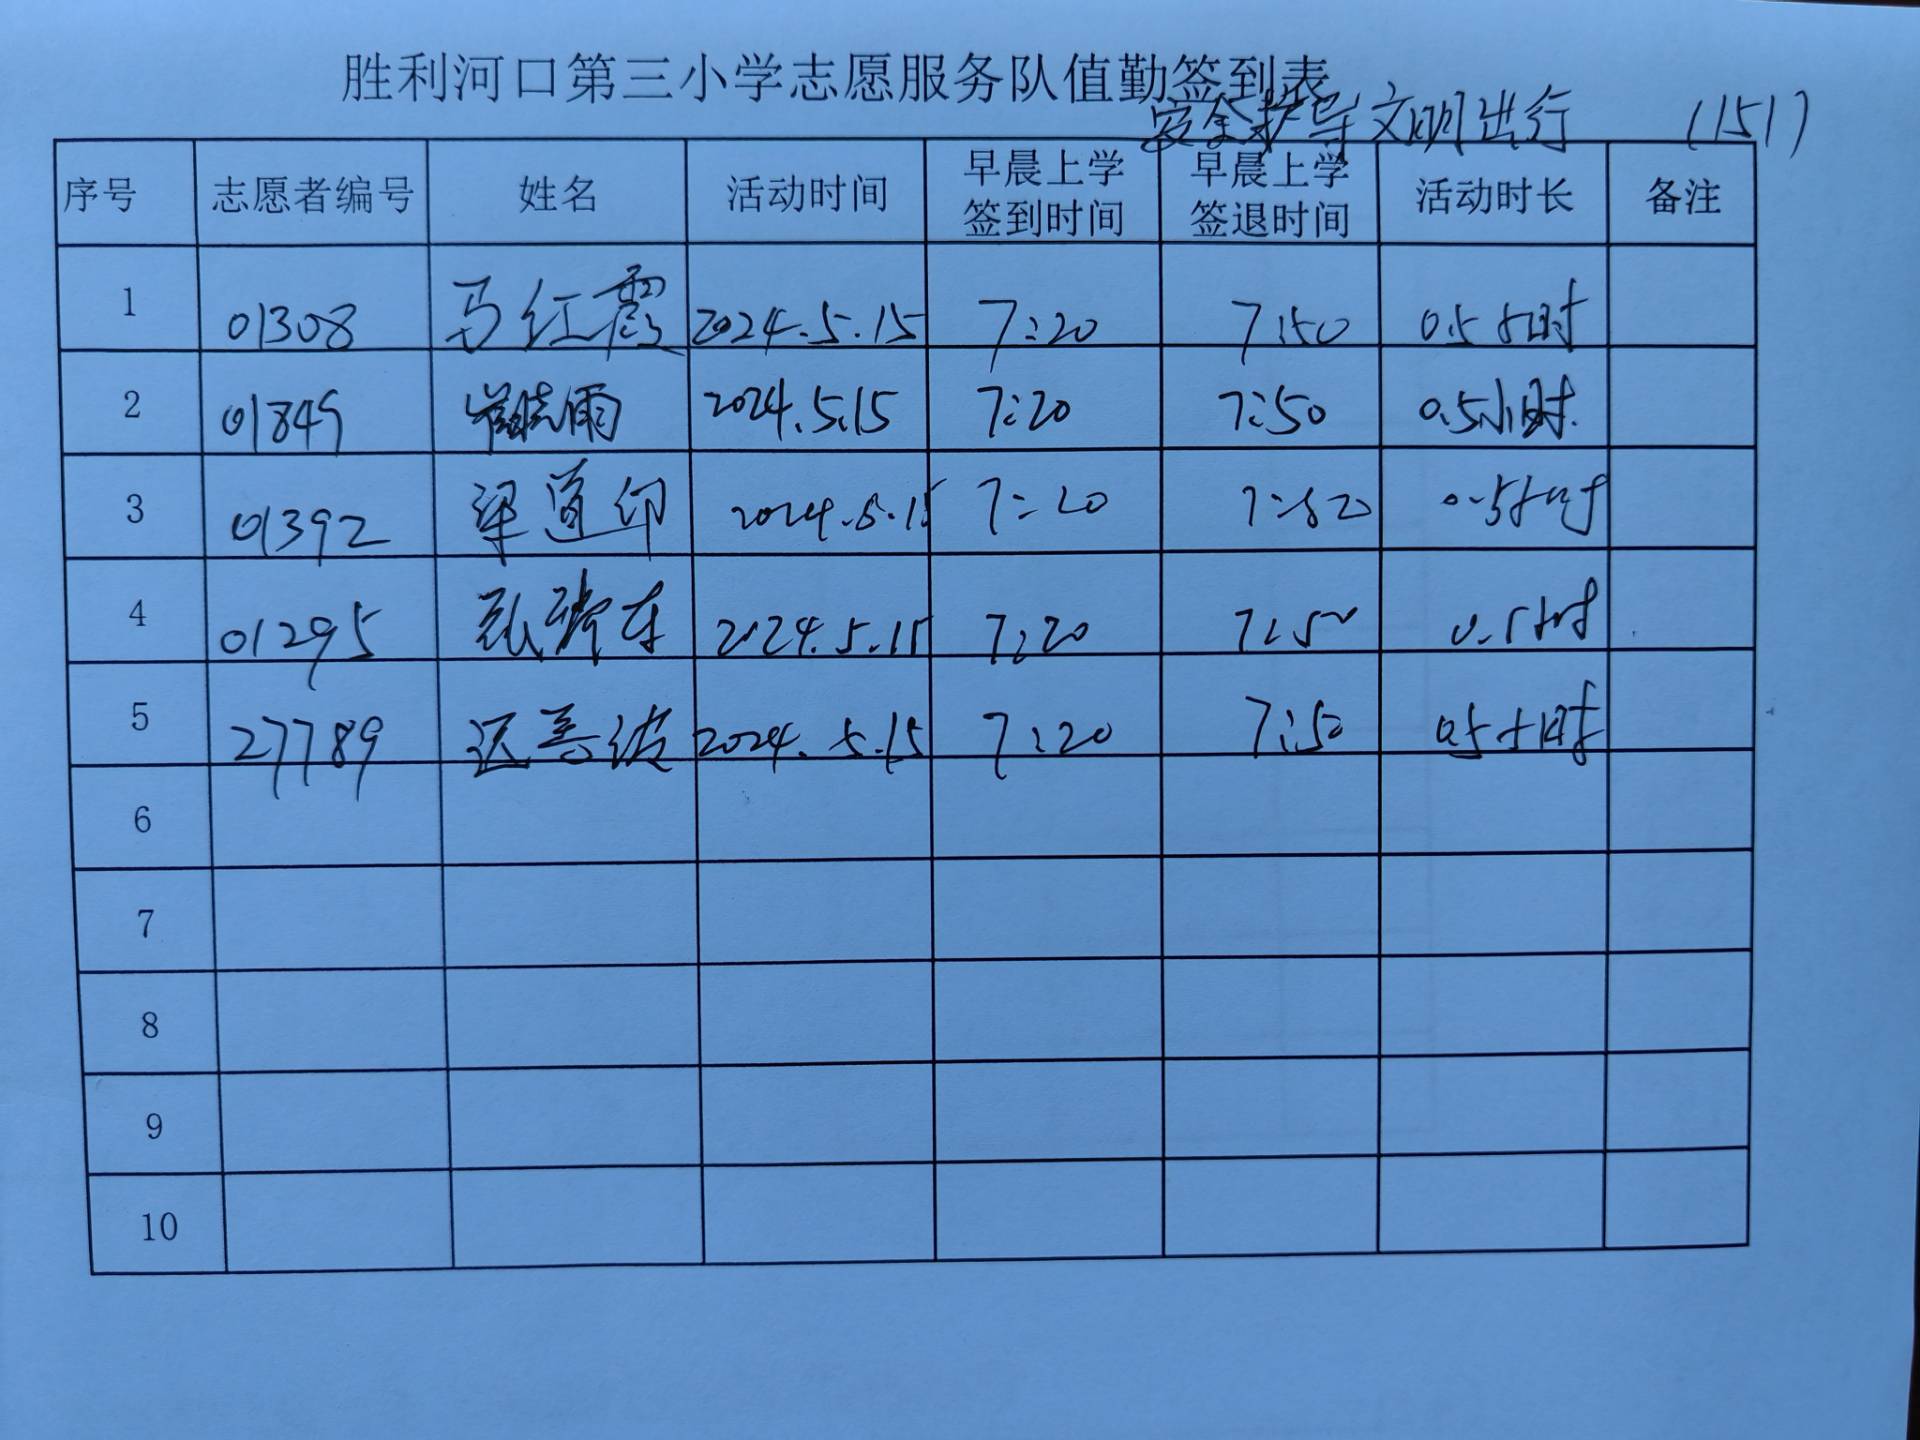 胜利河口第三小学志愿服务队值勤签到表
安全护导文明出行 (151)
序号 志愿者编号 姓名 活动时间 早晨上学签到时间 早晨上学签退时间 活动时长 备注
1 01308 马红霞 2024.5.15 7:20 7:50 0.5小时
2 01849 崔晓雨 2024.5.15 7:20 7:50 0.5小时.
3 01392 梁道印 2024.5.15 7:20 7:50 0.5小时
4 01295 2024.5.15 7:20 7:50 0.5小时
5 27789 迟善波 2024.5.15 7:20 7:50 0.5小时
6
7
8
9
10